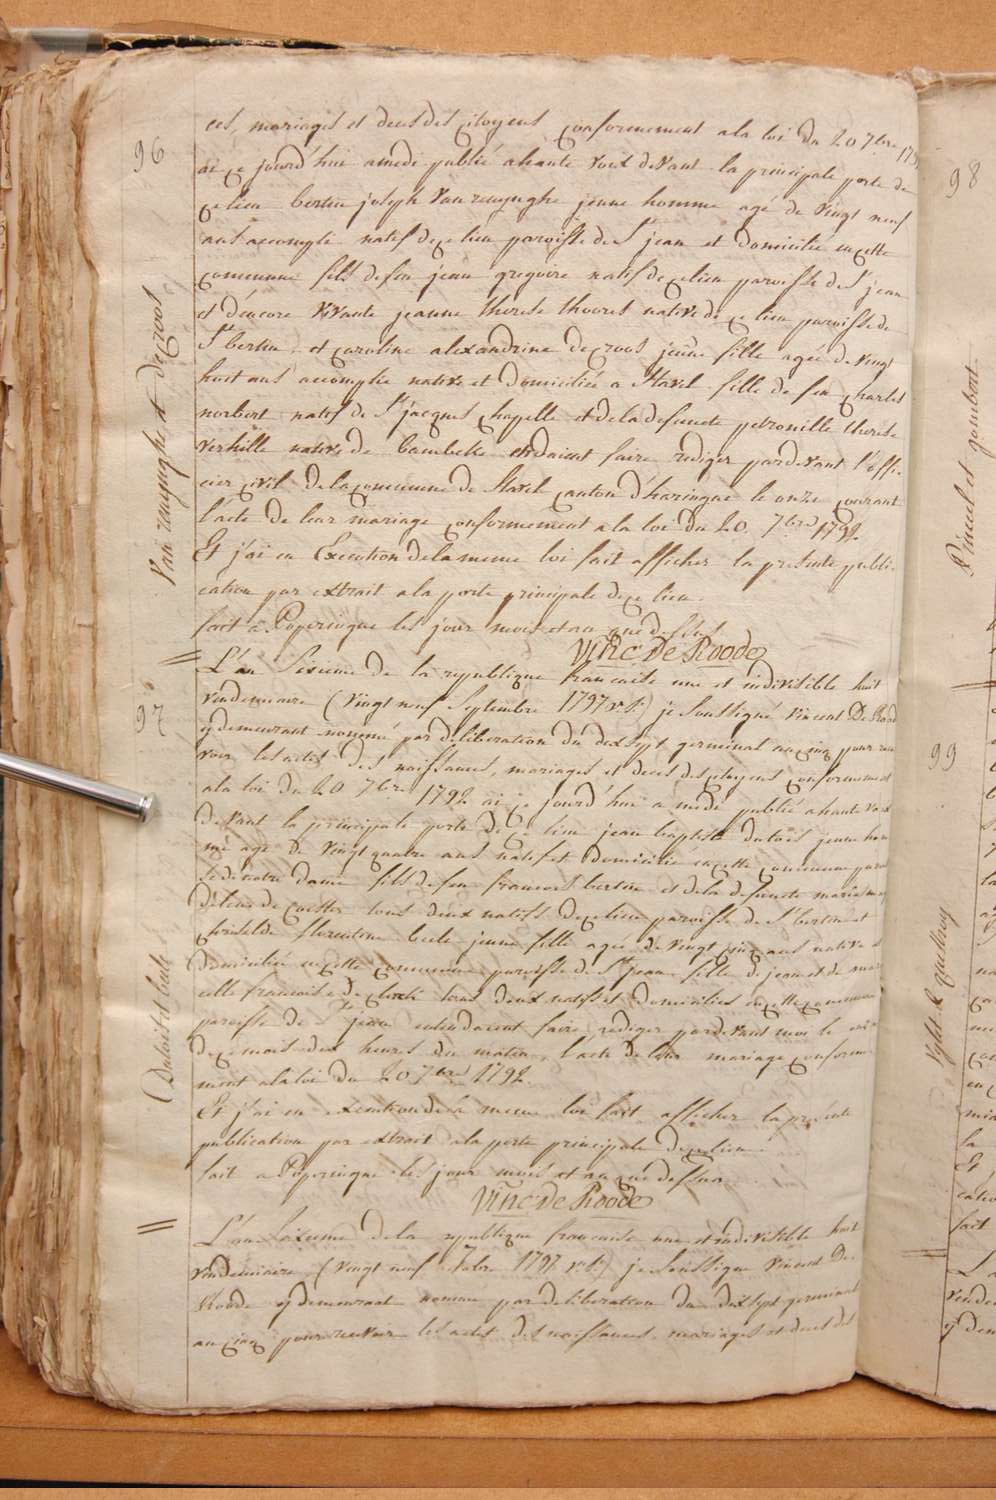 96
Van renynghe et decroos
ces, mariages et deces des citoyens conformement a la loi du 20 7bre 179
ai ce jourd'hui a midi publié a haute voix devant la principale porte de
ce lieu bertin joseph Van renynghe jeune homme agé de vingt neuf
ans accomplis natif de ce lieu paroisse de St jean et domicilié en cette
commune fils de feu jean gregoire natif de ce lieu paroisse de St jean
et d'encore vivante jeanne therese thoores native de ce lieu paroisse de
St bertin, et caroline alexandrine decroos jeune fille agée de vingt
huit ans accomplie native et domiciliée a Stavel fille de feu charles
norbert natif de St jacques chapelle et de la defuncte petronille therese
verhille native de bambeke entendaient faire rediger pardevant l'offi-
cier civil de la commune de Stavel canton d'haringue le onze courant
l'acte de leur mariage conformement a la loi du 20. 7bre 1792.
Et j'ai en Execution de la meme loi fait afficher la presente publi-
cation par extrait a la porte principale de ce lieu.
fait a Poperingue les jour mois et an que dessus
Vinc De Roode
97
Dutoit et beele
L'an Sixieme de la republique francaise une et indivisible huit
Vendemiaire (vingt neuf Septembre 1797 v.s.) je soussigné Vincent De Roode
y demeurant nommé par deliberation du dixsept germinal an cinq pour rece
voir les actes des naissances, mariages et deces des citoyens conformement
a la loi du 20 7bre 1792 ai ce jourd'hui a midi publié a haute voix
devant la principale porte de ce lieu jean baptiste dutoit jeune hom
me agé de vingt quatre ans natif et domicilié en cette commune parois
se de notre dame fils de feu francois bertin et de la defuncte marie
de coster tous deux natifs de ce lieu paroisse de St bertin et
griselde florentine beele jeune fille agée de vingt cinq ans native et
domiciliée en cette commune paroisse de St jean fille de jean et de mar
celle francoise de clerck tous deux natifs et domiciliés en cette commune
paroisse de St jean entendaient faire rediger pardevant moi le onze
de ce mois dix heures du matin, l'acte de leur mariage conforme
ment a la loi du 20 7bre 1792.
Et j'ai en execution de la meme loi fait afficher la presente
publication par extrait a la porte principale de ce lieu.
fait a Poperingue les jour mois et an que dessus
Vinc De Roode
L'an Sixieme de la republique francaise une et indivisible huit
vendemiaire (vingt neuf 7bre 1797 v.s.) je Soussigné Vincent De
Roode y demeurant nommé par deliberation du dixsept germinal
an cinq pour recevoir les actes des naissances, mariages et deces des
98
99